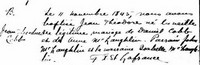 B. le 11 novembre 1845, nous avons
baptisé Jean Théodore né la veille
Jean légitime mariage de Daniel Cobb
Cobb et de Anne McLaughlin. Parrain John
McLaughlin et la marraine Isabelle McLaugh-
lin. Lafrance